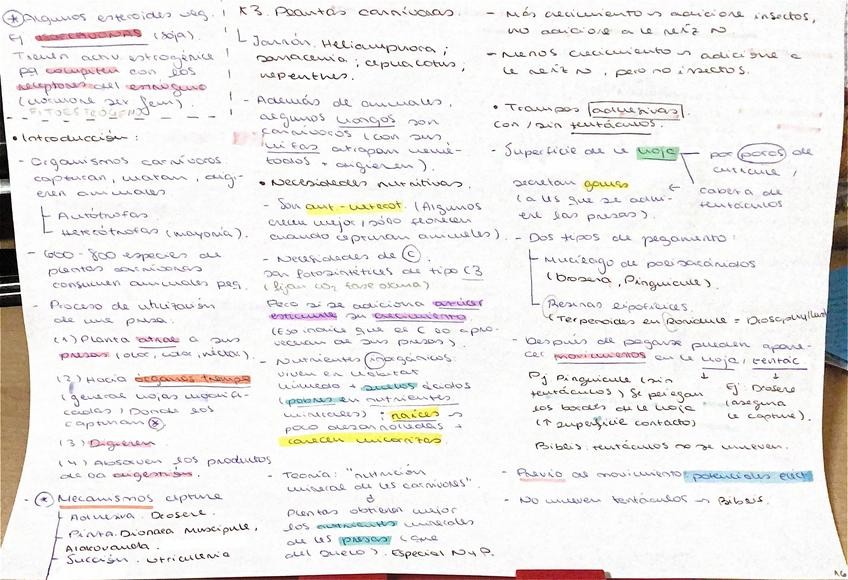 * Algunos esteroides veg.
Ej ISOFLAVONAS (soja).
Tienen activ. estrogénica
pq compiten con los
receptores del estrógeno
(hormona sex fem).
FITOESTRÓGENOS
• Introducción:
- Organismos carnívoros
capturan, matan, dig-
eren animales
Autótrofos
Heterótrofos (mayoría).
- 600-800 especies de
plantas carnívoras
consumen animales peq.
- Proceso de utilización
de una presa:
(1) Planta atrae a sus
presas (olor, color, néctar).
(2) Hacia órganos trampa
(general hojas modifi-
cadas) Donde los
capturan *
(3) Digieren
(4) Absorben los productos
de la digestión.
- * Mecanismos captura
Adhesiva. Drosera.
Pinza. Dionaea Muscipula,
Aldrovanda.
Succión. Utricularia
Plantas carnívoras.
Jarrón. Heliamphora;
sarracenia; cephalotus;
nepenthes.
- Además de animales,
algunos hongos son
carnívoros (con sus
hifas atrapan nemá-
todos + digieren).
• Necesidades nutritivas.
- Son aut-heterot. (Algunos
crecen mejor, sólo florecen
cuando capturan animales).
- Necesidades de C
son fotosintéticas de tipo C3
(fijan CO2 fase oscura)
Pero si se adiciona
estimula su crecimiento
(Eso indica que el C lo apro-
vechan de sus presas).
- Nutrientes inorgánicos
viven en hábitat
húmedo + suelos ácidos
(pobres en nutrientes
minerales); raíces →
poco desarrolladas +
carecen micorrizas.
- Teoría: "nutrición
mineral de las carnívoras".
↓
Plantas obtienen mejor
los nutrientes minerales
de las presas (que
del suelo). Especial N y P.
- Más crecimiento → adicione insectos,
no adicione a la raíz N
- Menos crecimiento → adicione a
la raíz N, pero no insectos.
• Trampas adhesivas
con/sin tentáculos.
- Superficie de la hoja — por poros de
cutícula,
cabeza de
tentáculos
secretan gomas
(a las que se adhi-
ere las presas).
- Dos tipos de pegamento:
Mucílago de polisacáridos
(Drosera, Pinguicula).
Resinas lipofílicas
(Terpenoides en Roridula = Drosophyllum
- Después de pegarse pueden apare-
cer movimientos en la hoja, tentác.
Pj Pinguicula (sin
tentáculos) Se pliegan
los bordes de la hoja
(↑ superficie contacto)
Ej Drosera
(asegura
la captura).
Biblis. tentáculos no se mueven.
- Previo al movimiento: potenciales eléct
- No mueven tentáculos → Biblis.